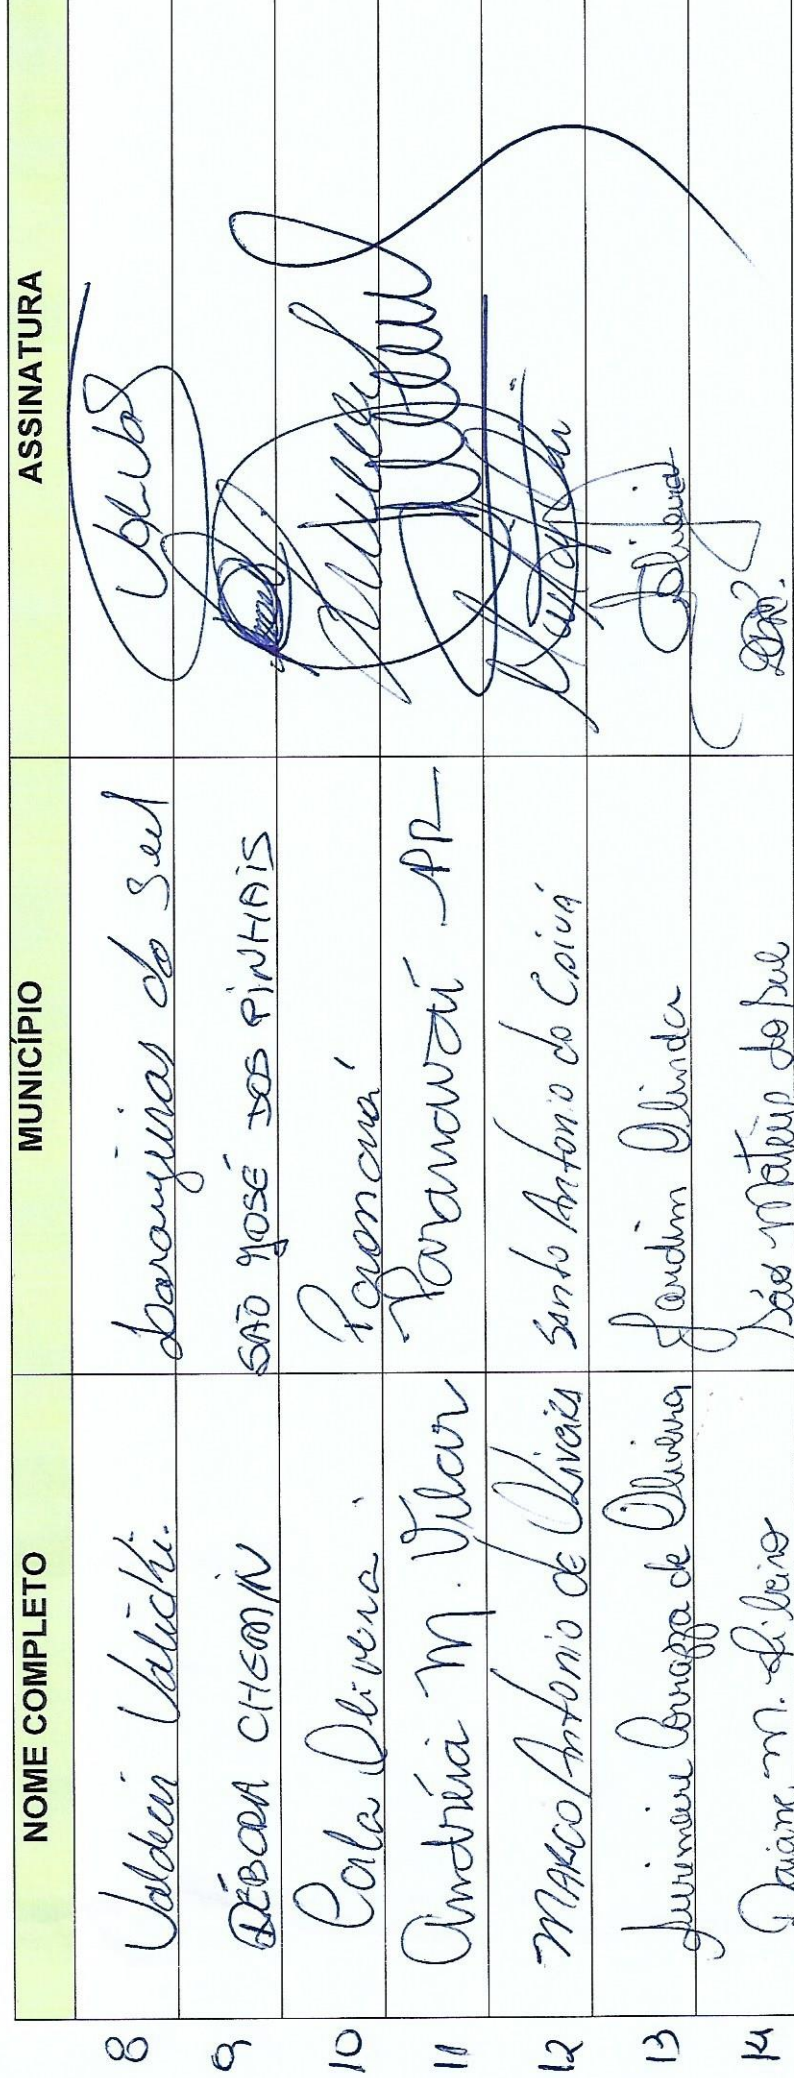 NOME COMPLETO MUNICÍPIO ASSINATURA
8 Valdeci Valicki. Laranjeiras do Sul
9 DÉBORA CHEMIN SÃO JOSÉ DOS PINHAIS
10 Carla Oliveira Parananá
11 Andréia M. Vilar Paranavaí - PR
12 MARCO Antonio de Oliveira Santo Antonio do Caiuá
13 de Oliveira Jardim Olinda
14 Daiane M. Ribeiro São Mateus do Sul